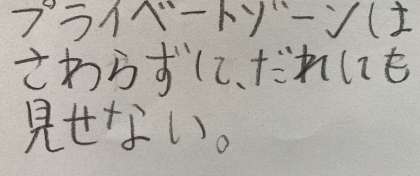 プライベートゾーンは
さわらずに、だれにも
見せない。